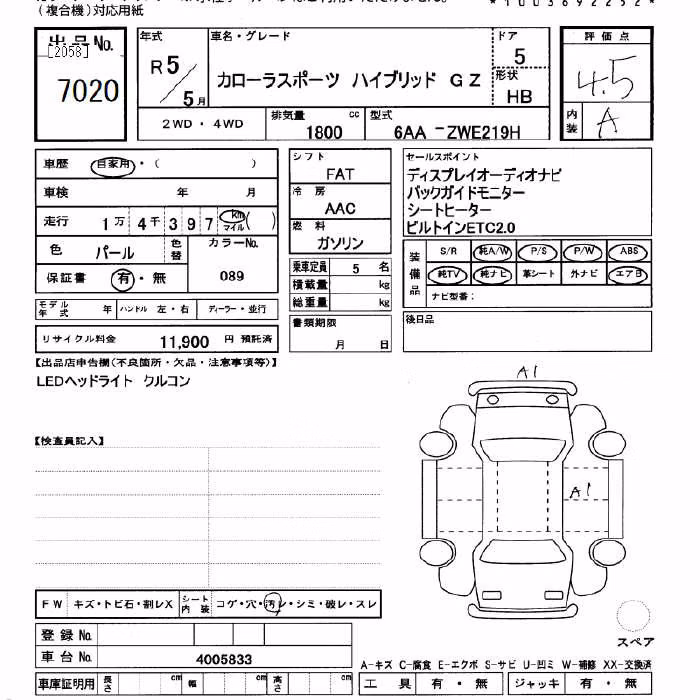 (複合機)対応用紙
*1003692252*
出品No.
[2058]
7020
年式
R5/5月
車名・グレード
カローラスポーツ ハイブリッド GZ
ドア
5
形状
HB
2WD・4WD
排気量
1800 cc
型式
6AA -ZWE219H
評価点
4.5
内装
A
車歴 自家用・( )
車検 年 月
走行 1万 4千 3 9 7 Km マイル ( )
色 パール 色替
カラーNo.
089
保証書 有・無
モデル年式 年 ハンドル 左・右 ディーラー・並行
リサイクル料金 11,900 円 預託済
シフト
FAT
冷房
AAC
燃料
ガソリン
乗車定員 5 名
積載量 kg
総重量 kg
書類期限
月 日
セールスポイント
ディスプレイオーディオナビ
バックガイドモニター
シートヒーター
ビルトインETC2.0
装備品
S/R 純A/W P/S P/W ABS
純TV 純ナビ 革シート 外ナビ エアB
ナビ型番:
後日品
【出品店申告欄(不良箇所・欠品・注意事項等)】
LEDヘッドライト クルコン
【検査員記入】
A1
A1
FW キズ・トビ石・割レX シート内装 コゲ・穴・汚レ・シミ・破レ・スレ
登録No.
車台No. 4005833
車庫証明用 長さ cm 幅 cm 高さ cm
スペア
A-キズ C-腐食 E-エクボ S-サビ U-凹ミ W-補修 XX-交換済
工具 有・無 ジャッキ 有・無